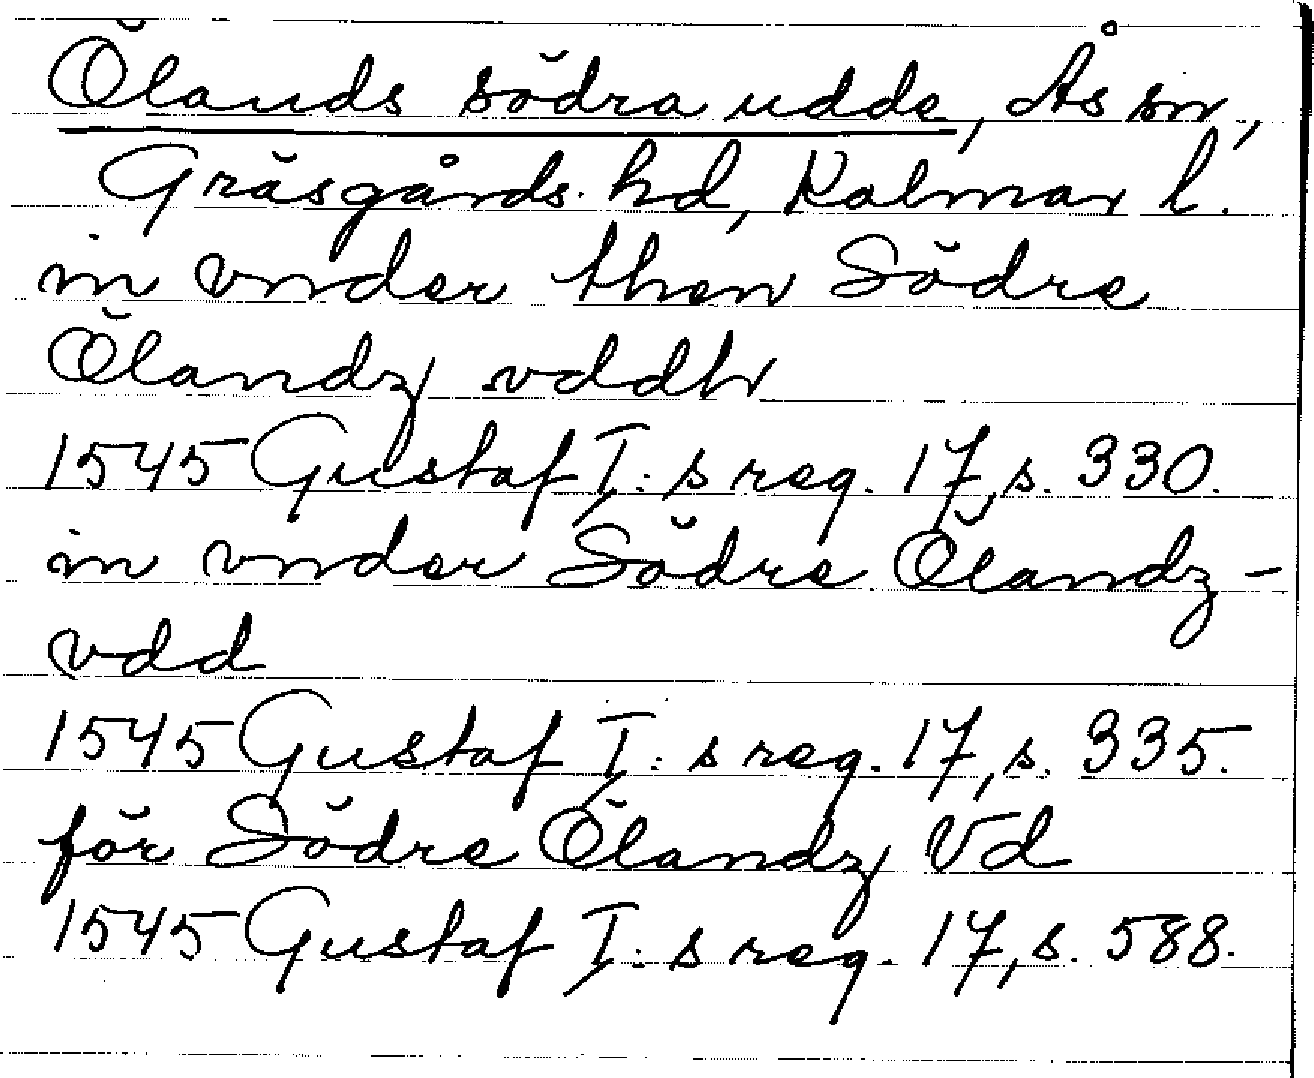 Ölands södra udde, Ås sn,
Gräsgårds hd, Kalmar l.
in vnder then Södre
Ölandz vddh
1545 Gustaf I:s reg. 17, s. 330.
in vnder Södre Ölandz-
vdd
1545 Gustaf I:s reg. 17, s. 335.
för Södre Ölandz Vd
1545 Gustaf I:s reg. 17, s. 588.